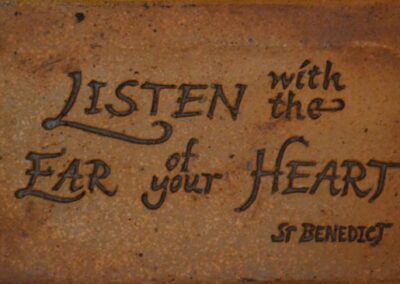 LISTEN with the
EAR of your HEART
ST BENEDICT